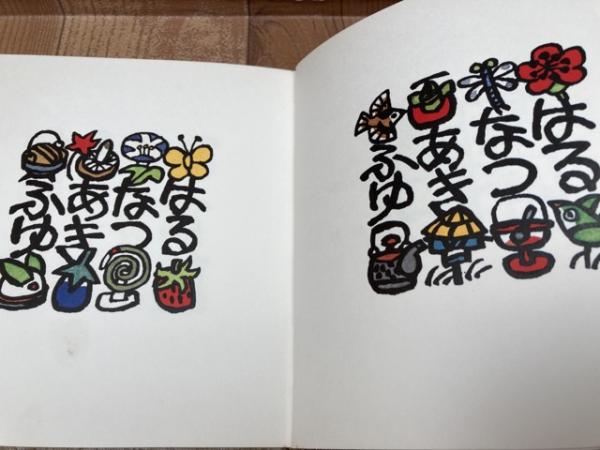 はる
なつ
あき
ふゆ
はる
なつ
あき
ふゆ